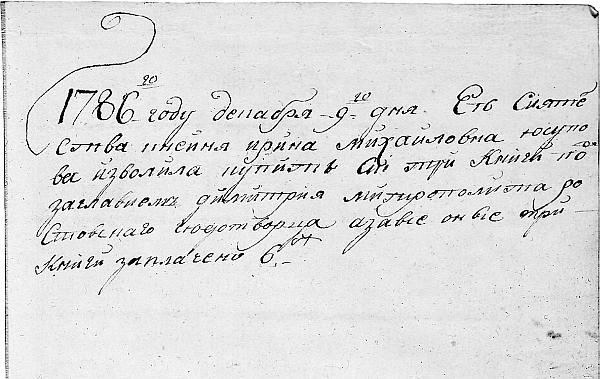 1786го году декабря 9го дня. Еѣ Сияте
ства кнейня ирина михайловна юсупо
ва изволила купить Сiи три Книги подъ
заглавиемъ димитрия митрополита ро
стовскаго чюдотворца а завсе оные три
Книги заплачено 6.ру